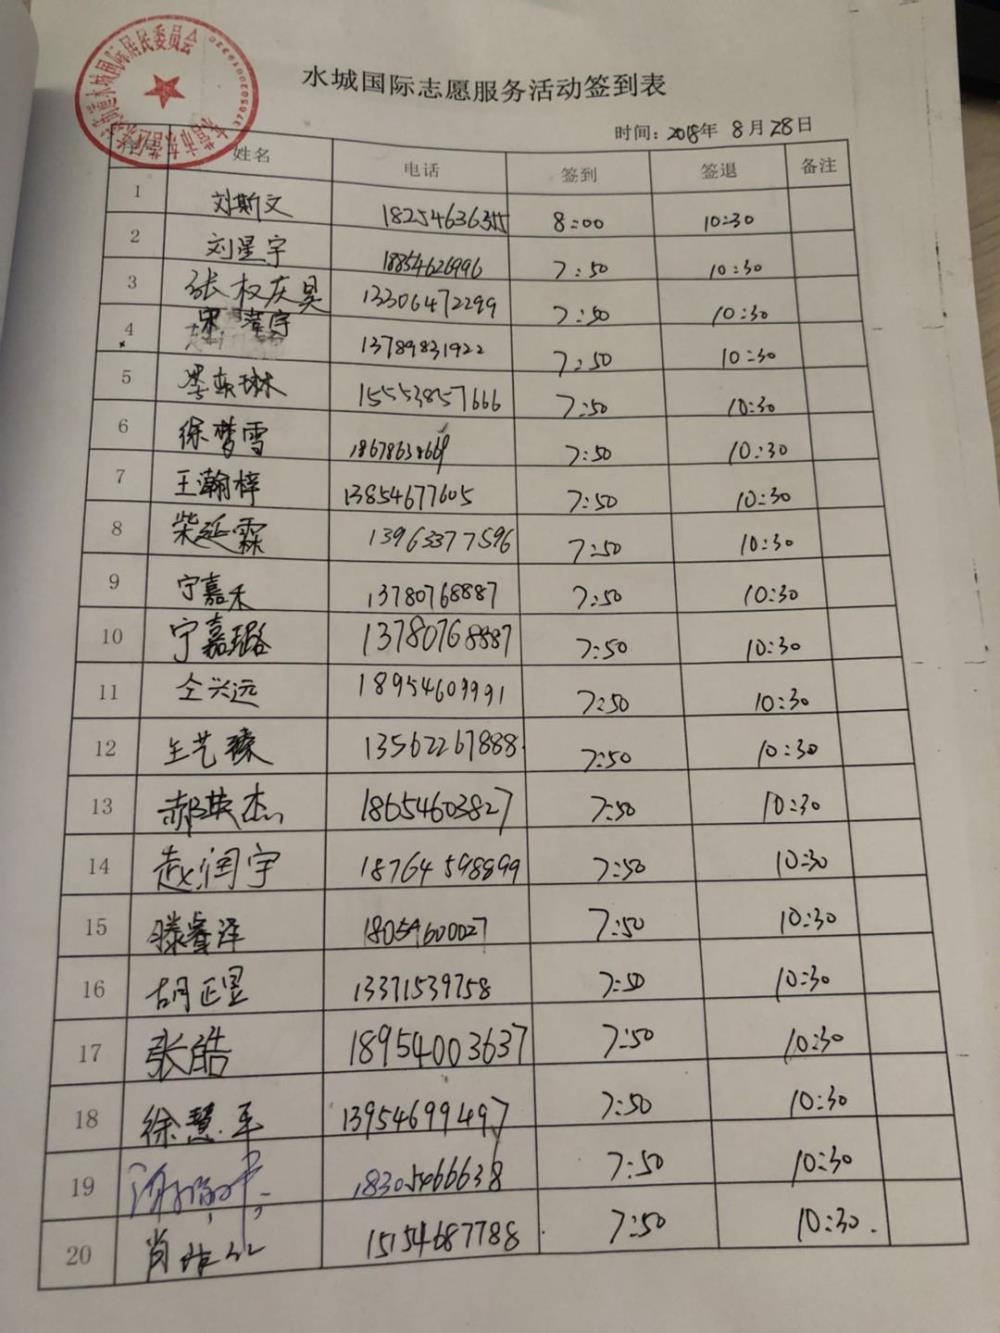 水城国际志愿服务活动签到表
时间：2018年 8月28日
姓名 电话 签到 签退 备注
1 刘斯文 8:00 10:30
2 刘星宇 18854626996 7:50 10:30
3 张权庆昊 13306472299 7:50 10:30
4 13789831922 7:50 10:30
5 15553857666 7:50 10:30
6 徐梦雪 7:50 10:30
7 王瀚梓 13854677605 7:50 10:30
8 柴延霖 13963377596 7:50 10:30
9 宁嘉禾 13780768887 7:50 10:30
10 宁嘉璐 13780768887 7:50 10:30
11 仝兴远 18954609991 7:50 10:30
12 王艺臻 13562267888 7:50 10:30
13 郝英杰 18654603827 7:50 10:30
14 赵润宇 18764598899 7:50 10:30
15 滕睿泽 18054600027 7:50 10:30
16 胡正昱 13371539758 7:50 10:30
17 张皓 18954003637 7:50 10:30
18 徐慧平 13954699497 7:50 10:30
19 18305466638 7:50 10:30
20 15154687788 7:50 10:30.